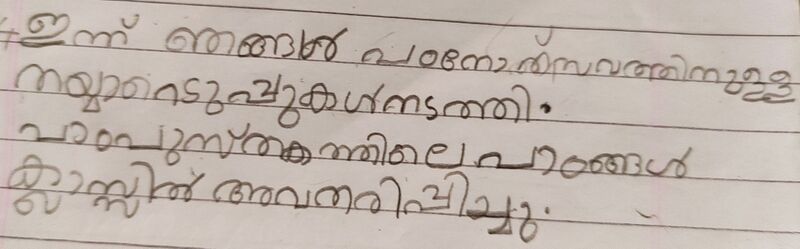 ഇന്ന് ഞങ്ങൾ പഠനോത്സവത്തിനുള്ള
തയ്യാറെടുപ്പുകൾ നടത്തി.
പാഠപുസ്തകത്തിലെ പാഠങ്ങൾ
ക്ലാസ്സിൽ അവതരിപ്പിച്ചു.